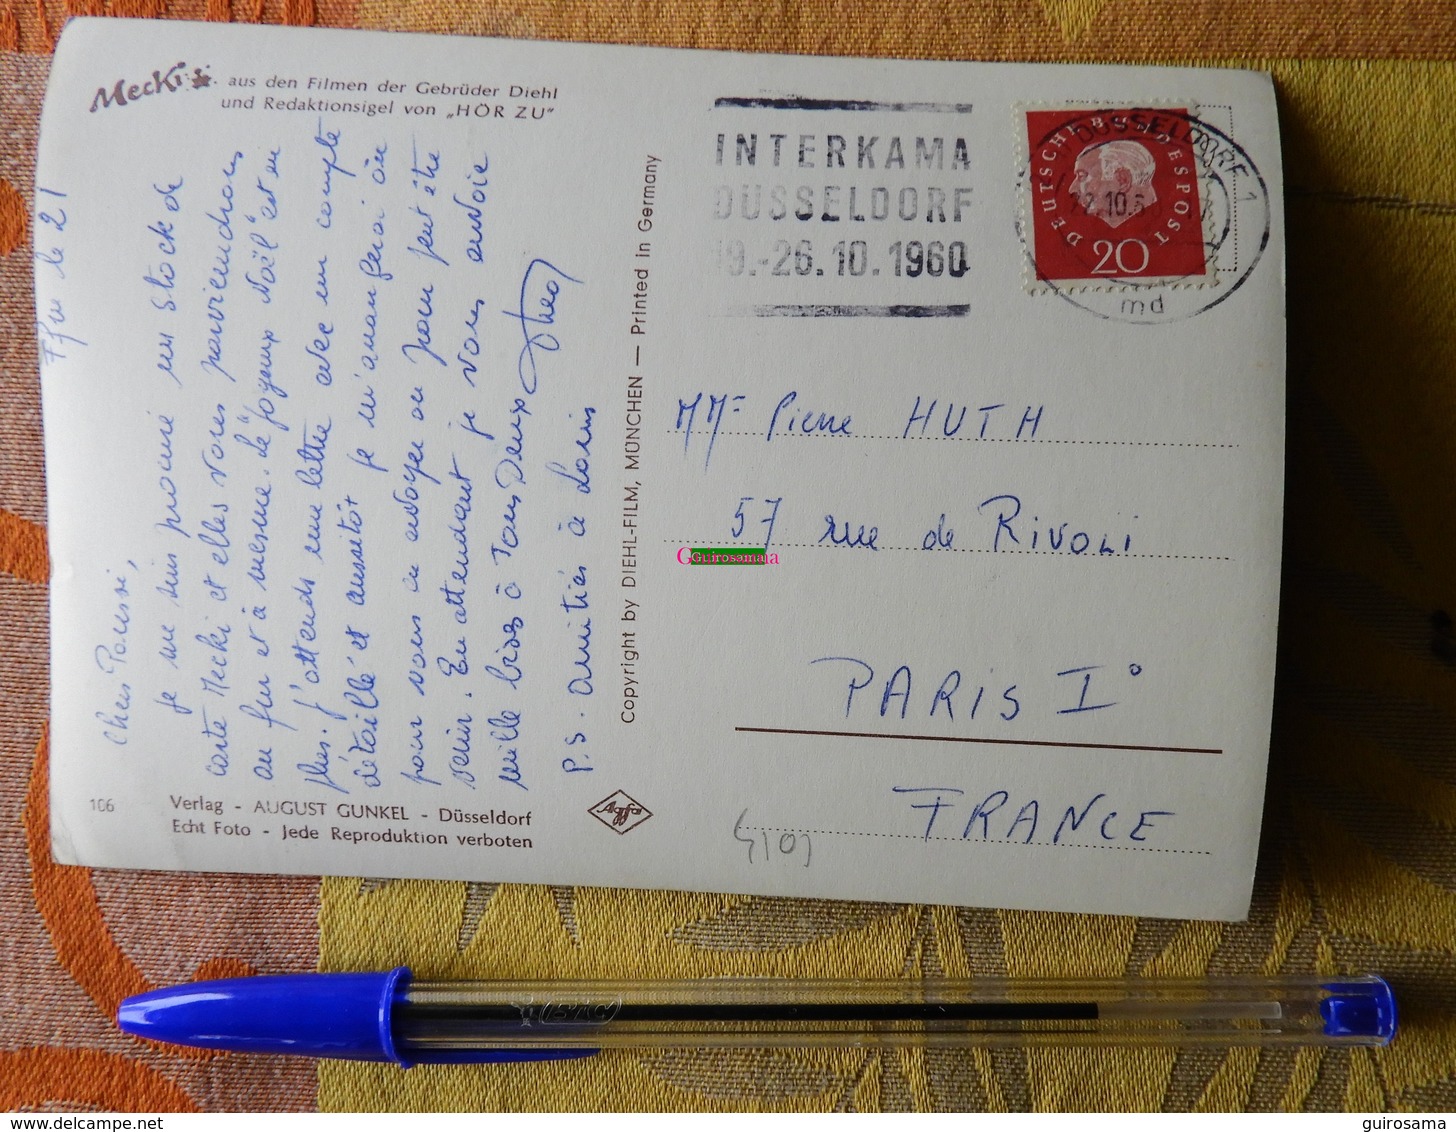 Mecki
aus den Filmen der Gebrüder Diehl
und Redaktionsigel von „HÖR ZU"
Ffm le 21
Chers Poussi,
je me suis procuré un stock de
carte Mecki et elles vous parviendrons
au fur et à mesure. Le "Joyeux Noël" est en
plus. J'attends une lettre avec un compte
détaillé et aussitôt je m'arrangerai ou
pour vous en envoyer ou pour peut être
venir. En attendant je vous envoie
mille bises à Tous Deux
P.S. amitiés à
106
Verlag - AUGUST GUNKEL - Düsseldorf
Echt Foto - Jede Reproduktion verboten
Agfa
Copyright by DIEHL-FILM, MÜNCHEN — Printed in Germany
INTERKAMA
DÜSSELDORF
19.-26.10.1960
DÜSSELDORF 1
22.10.60
md
DEUTSCHE BUNDESPOST
20
MM= Pierre HUTH
57 rue de RIVOLI
PARIS I°
FRANCE
Guirosamaia
BIC
guirosama